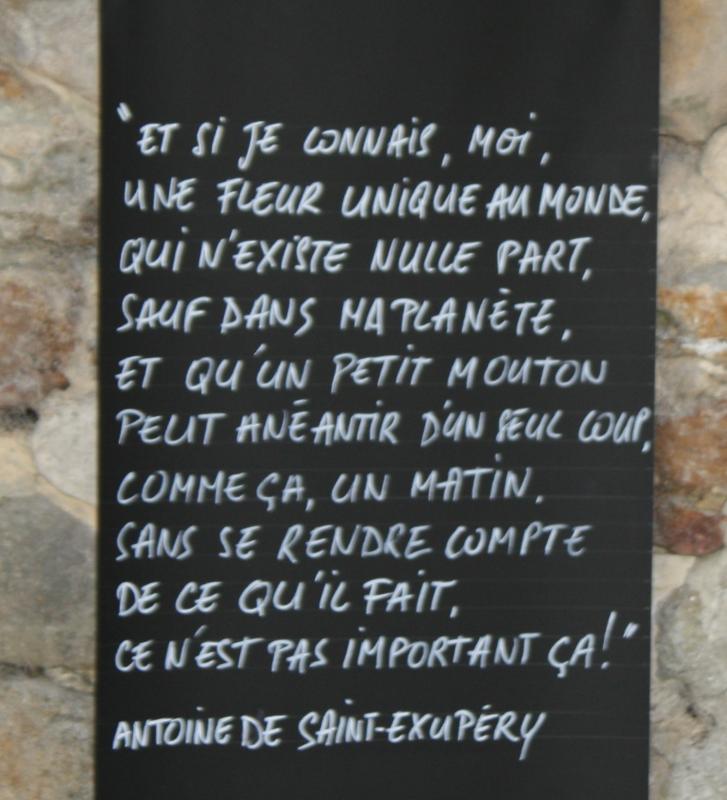 "ET Si JE CONNAiS, MOi,
UNE FLEUR UNiQUE AU MONDE,
QUi N'EXiSTE NULLE PART,
SAUF DANS MA PLANÈTE,
ET QU'UN PETiT MOUTON
PEUT ANÉANTiR D'UN SEUL COUP,
COMME ÇA, UN MATiN.
SANS SE RENDRE COMPTE
DE CE QU'iL FAiT,
CE N'EST PAS iMPORTANT ÇA!"
ANTOiNE DE SAiNT-EXUPÉRY